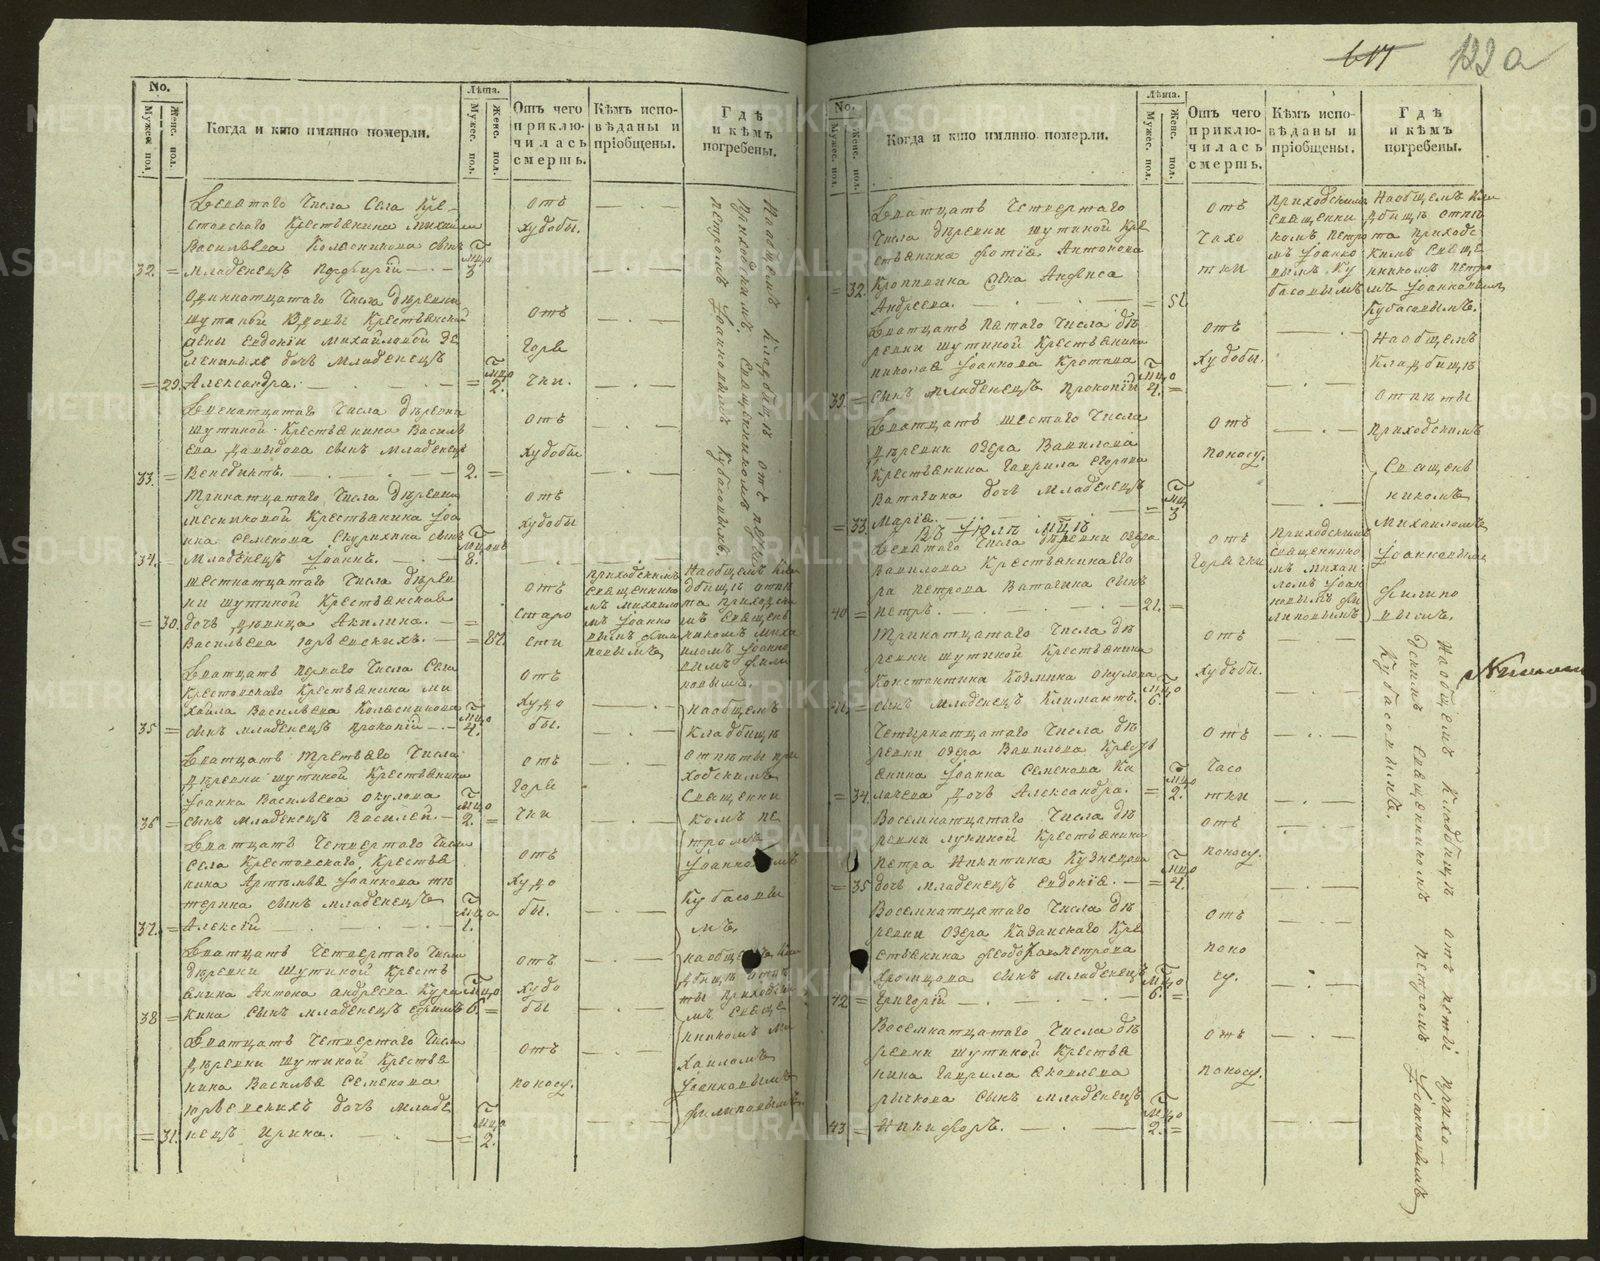 No.
Мужес. пол.
Женс. пол.
Когда и кто имянно померли.
Лѣта.
Мужес. пол.
Женс. пол.
Отъ чего
приклю-
чилась
смерть.
Кѣмъ испо-
вѣданы и
пріобщены.
Гдѣ
и кѣмъ
погребены.
Девятаго Числа Села Кре-
стовскаго Крестьянина Михаила
Васильева Колесникова сынъ
32. = Младенецъ Порфирій
3
отъ
худобы.
На общемъ кладбищѣ отъ
приходскимъ Священникомъ
Петромъ Іоанновымъ Кубасовымъ.
Одиннатцатаго Числа Деревни
Шутиной Вдовы Крестьянской
жены Евдокіи Михайловой
дочь Младенецъ
= 29. Александра.
= 2.
отъ
Горя
чки.
Двенатцатаго Числа Деревни
Шутиной Крестьянина Василь
ева Давыдова сынъ Младенецъ
33. = Венедиктъ.
2. =
отъ
худобы
Тринатцатаго Числа Деревни
Крестьянина Іоа
нна Семенова сынъ
34. = Младенецъ Іоаннъ.
8.
отъ
худобы
шестнатцатаго Числа Дерев
ни Шутиной Крестьянская
= 30. дочь девица Акилина
Васильева Юрьевскихъ.
= 87.
отъ
Старо
сти
приходскимъ
Священнико
мъ Михаило
мъ Іоанно
вымъ Фили
повымъ
На общемъ кла
дбищѣ отпѣ
та приходски
мъ Священ
никомъ Миха
иломъ Іоанно
вымъ Фили
повымъ.
Дватцать перваго Числа Села
Крестовскаго Крестьянина Ми
хайла Васильева Колесникова
35 = сынъ Младенецъ Прокопій
4.
отъ
Худо
бы.
на общемъ
Кладбищѣ
отпѣты при
ходскимъ
Священни
комъ Пе
тромъ
Іоанновымъ
Кубасовы
мъ.
Дватцать третьяго Числа
Деревни Шутиной Крестьянина
Іоанна Васильева Окулова
36 = сынъ Младенецъ Василей.
2. =
отъ
Горя
чки
Дватцать Четвертаго Числа
Села Крестовскаго Крестья
нина Артемья Іоаннова
сынъ младенецъ
37. = Алексій
1.
отъ
Худо
бы.
Дватцать Четвертаго Числа
Деревни Шутиной Кресть
янина Антона Андреева
38 = сынъ младенецъ
6. =
отъ
худо
бы
на общемъ кла
дбищѣ отпѣ
ты приходски
мъ Свяще
нникомъ Ми
хаиломъ
Іоанновымъ
Филиповымъ.
Дватцать Четвертаго Числа
Деревни Шутиной Крестья
нина Василья Семенова
Юрьевскихъ дочь Младе
= 31. нецъ Ирина.
= 2.
отъ
поносу.
617
122а
No.
Мужес. пол.
Женс. пол.
Когда и кто имянно померли.
Лѣта.
Мужес. пол.
Женс. пол.
Отъ чего
приклю-
чилась
смерть.
Кѣмъ испо-
вѣданы и
пріобщены.
Гдѣ
и кѣмъ
погребены.
Дватцать Четвертаго
Числа Деревни Шутиной Кре
стьянина Фотія Антонова
= 32. жена Анфиса
Андреева.
= 51.
отъ
Чахо
тки
Приходскимъ
Священни
комъ Петро
мъ Іоанно
вымъ Ку
басовымъ
На общемъ Кла
дбищѣ отпѣ
та приходс
кимъ Свяще
нникомъ Петро
мъ Іоанновымъ
Кубасовымъ.
Дватцать пятаго Числа де
ревни Шутиной Крестьянина
Николая Іоаннова Кротова
39. = сынъ младенецъ Прокопій
4. =
отъ
худобы.
На общемъ
Кладбищѣ
отпѣты
приходскимъ
Священ
никомъ
Михаиломъ
Іоанновымъ
Филипо
вымъ.
Дватцать шестаго Числа
Деревни Озера Вавилова
Крестьянина Гаврила Егорова
Ватагина дочь Младенецъ
= 33. Марія.
= 3
отъ
поносу.
Въ Іюлѣ Мцѣ
Девятаго Числа Деревни Озера
Вавилова Крестьянина
Петрова Ватагина сынъ
40 = Петръ.
21. =
отъ
Горячки
Приходскимъ
Священнико
мъ Михаи
ломъ Іоан
новымъ Фи
липовымъ
Тринатцатаго Числа де
ревни Шутиной Крестьянина
Константина Козмина Окулова
41. = сынъ Младенецъ Климантъ.
6.
отъ
Худобы.
На общемъ Кладбищѣ отпѣтій прихо-
дскимъ Священникомъ Петромъ Іоанновымъ
Кубасовымъ.
Четырнатцатаго Числа де
ревни Озера Вавилова Кресть
янина Іоанна Семенова
= 34. дочь Александра.
= 2.
отъ
Чахо
тки
Восемнатцатаго Числа де
ревни Лукиной Крестьянина
Петра Никитина Кузнецова
= 35 дочь младенецъ Евдокія.
= 4.
отъ
поносу.
Восемнатцатаго Числа де
ревни Озера Казанскаго Кре
стьянина Феодора Петрова
сынъ Младенецъ
42 = Григорій
6. =
отъ
поно
су.
Восемнатцатаго Числа де
ревни Шутиной Крестья
нина Гаврила Яковлева
сынъ Младенецъ
43 = Никифоръ.
2. =
отъ
поносу.
METRIKI.GASO-URAL.RU